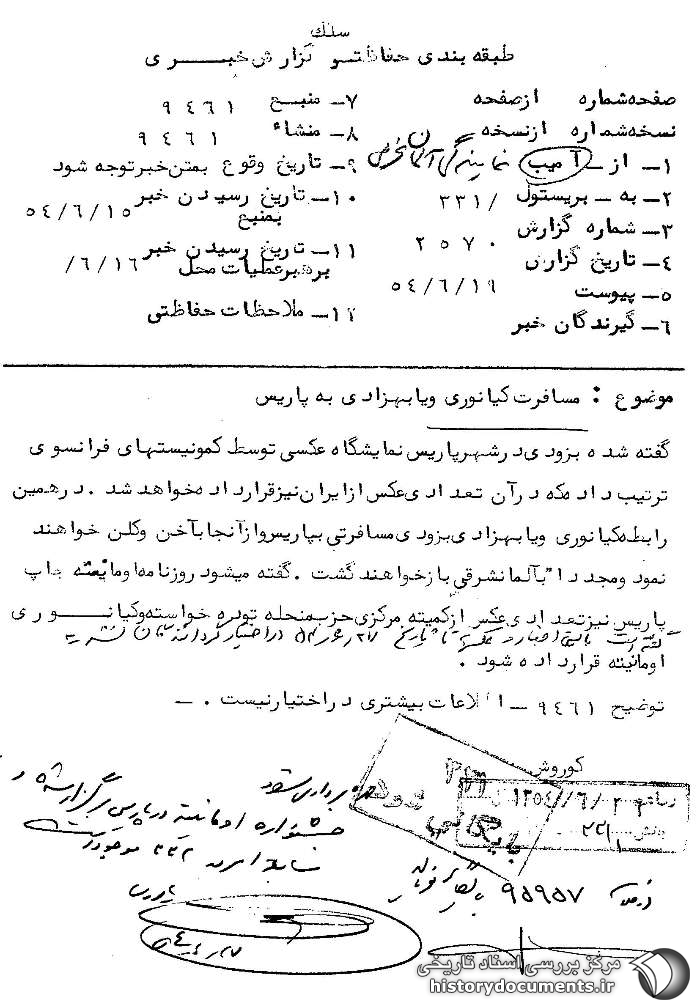 سلك
طبقه بندی حفاظتی گزارش خبری
صفحه شماره از صفحه
نسخه شماره از نسخه
۱- از - نمایندگی آلمان
۲- به - بریستول /۳۳۱
۳- شماره گزارش ۲۵۷۰
۴- تاریخ گزارش
۵- پیوست ۵۴/۶/۱۹
۶- گیرندگان خبر
۷- منبع ۹۴۶۱
۸- منشاء ۹۴۶۱
۹- تاریخ وقوع بمتن خبر توجه شود
۱۰- تاریخ رسیدن خبر
بمنبع ۵۴/۶/۱۵
۱۱- تاریخ رسیدن خبر
برهبر عملیات محل ۶/۱۶/
۱۲- ملاحظات حفاظتی
موضوع : مسافرت کیانوری ویا بهزادی به پاریس
گفته شده بزودی در شهر پاریس نمایشگاه عکسی توسط کمونیستهای فرانسوی
ترتیب داده که در آن تعدادی عکس از ایران نیز قرار داده خواهد شد . در همین
رابطه کیانوری ویا بهزادی بزودی مسافرتی بپاریس و از آنجا بآخن و کلن خواهند
نمود و مجددا" بآلمان شرقی باز خواهند گشت . گفته میشود روزنامه اومانیته چاپ
پاریس نیز تعدادی عکس از کمیته مرکزی حزب منحله توده خواسته و کیانوری
گفته است بایستی اخبار و عکسها تا تاریخ در اختیار
اومانیته قرار داده شود .
توضیح ۹۴۶۱ - اطلاعات بیشتری در اختیار نیست . -
کوروش
۱۳۵۴/۶/۲۲
بخش ۳۳۱
بایگانی شود
بهره برداری شود
جشنواره اومانیته در پاریس برگزار شده و
سابقه امر در ۳۳۲ موجود است
۹۵۹۵۷
مرکز بررسی اسناد تاریخی
historydocuments.ir